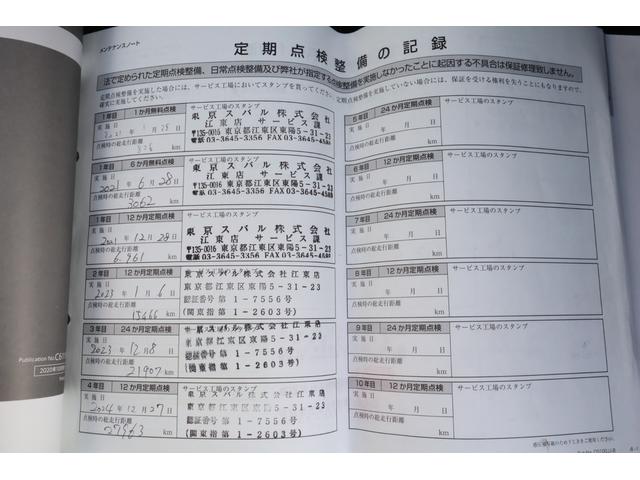 メンテナンスノート
定期点検整備の記録
法で定められた定期点検整備、日常点検整備及び弊社が指定する点検整備を実施しなかったことに起因する不具合は保証修理致しません。
定期点検整備を実施した場合には、サービス工場においてスタンプを貰ってください。定期点検整備を実施していない場合には、保証を受ける権利を失うことにもなりますので、
確実に実施してください。
1年目 1か月無料点検
サービス工場のスタンプ
実施日 2021年1月25日
点検時の総走行距離
826 km
東京スバル株式会社
江東店 サービス課
〒135-0016 東京都江東区東陽5-31-23
電話 03-3645-3356 FAX 03-3645-4582
1年目 6か月無料点検
サービス工場のスタンプ
実施日 2021年6月28日
点検時の総走行距離
3062 km
東京スバル株式会社
江東店 サービス課
〒135-0016 東京都江東区東陽5-31-23
電話 03-3645-3356 FAX 03-3645-4582
1年目 12か月定期点検
サービス工場のスタンプ
実施日 2021年12月28日
点検時の総走行距離
6,961 km
東京スバル株式会社
江東店 サービス課
〒135-0016 東京都江東区東陽5-31-23
電話 03-3645-3356 FAX 03-3645-4582
2年目 12か月定期点検
実施日 2023年1月6日
点検時の総走行距離
15466 km
東京スバル株式会社江東店
東京都江東区東陽5-31-23
認証番号 第1-7556号
(関東指第1-2603号)
3年目 24か月定期点検
サービス工場のスタンプ
実施日 2023年12月8日
点検時の総走行距離
21907 km
東京スバル株式会社江東店
東京都江東区東陽5-31-23
認証番号 第1-7556号
(関東指第1-2603号)
4年目 12か月定期点検
サービス工場のスタンプ
実施日 2024年12月27日
点検時の総走行距離
27963 km
東京スバル株式会社江東店
東京都江東区東陽5-31-23
認証番号 第1-7556号
(関東指第1-2603号)
5年目 24か月定期点検
サービス工場のスタンプ
実施日 年 月 日
点検時の総走行距離
km
6年目 12か月定期点検
サービス工場のスタンプ
実施日 年 月 日
点検時の総走行距離
km
7年目 24か月定期点検
サービス工場のスタンプ
実施日 年 月 日
点検時の総走行距離
km
8年目 12か月定期点検
サービス工場のスタンプ
実施日 年 月 日
点検時の総走行距離
km
9年目 24か月定期点検
サービス工場のスタンプ
実施日 年 月 日
点検時の総走行距離
km
10年目 12か月定期点検
サービス工場のスタンプ
実施日 年 月 日
点検時の総走行距離
km
Publication No.